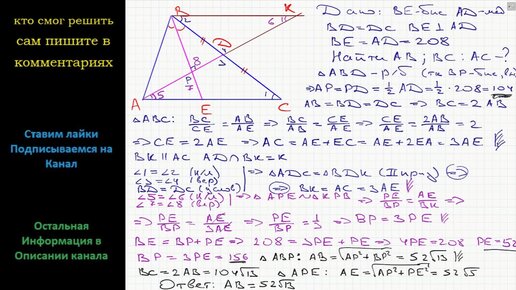 кто смог решить
сам пишите в
комментариях
Ставим лайки
Подписываемся на
Канал
Остальная
Информация в
Описании канала
B
K
A
E
C
D
P
1
2
3
4
5
6
7
8
Дано: BE-бис AD-мед
BD=DC BE⊥AD
BE=AD=208
Найти AB; BC; AC-?
△ABD-р/б (та BP-бис, выс)
⇒AP=PD=½AD=½·208=104
AB=BD=DC ⇒ BC=2AB
△ABC: BC/CE=AB/AE ⇒ BC/AB=CE/AE ⇒ CE/AE=2AB/AB=2
⇒CE=2AE ⇒ AC=AE+EC=AE+2EA=3AE
BK∥AC AD∩BK=K
∠1=∠2 (н/л)
∠3=∠4 (вер)
BD=DC (услов) ⇒ △ADC=△BDK (II пр-к) ⇒ BK=AC=3AE
∠5=∠6 (н/л)
∠7=∠8 (вер) ⇒ △APE∾△KPB ⇒ PE/BP=AE/BK ⇒
⇒ PE/BP=AE/3AE ⇒ PE/BP=1/3 ⇒ BP=3PE
BE=BP+PE ⇒ 208=3PE+PE ⇒ 4PE=208 PE=52
BP=3PE=156 △ABP: AB=√AP²+BP²=52√13
BC=2AB=104√13 △APE: AE=√AP²+PE²=52√5
Ответ: AB=52√13